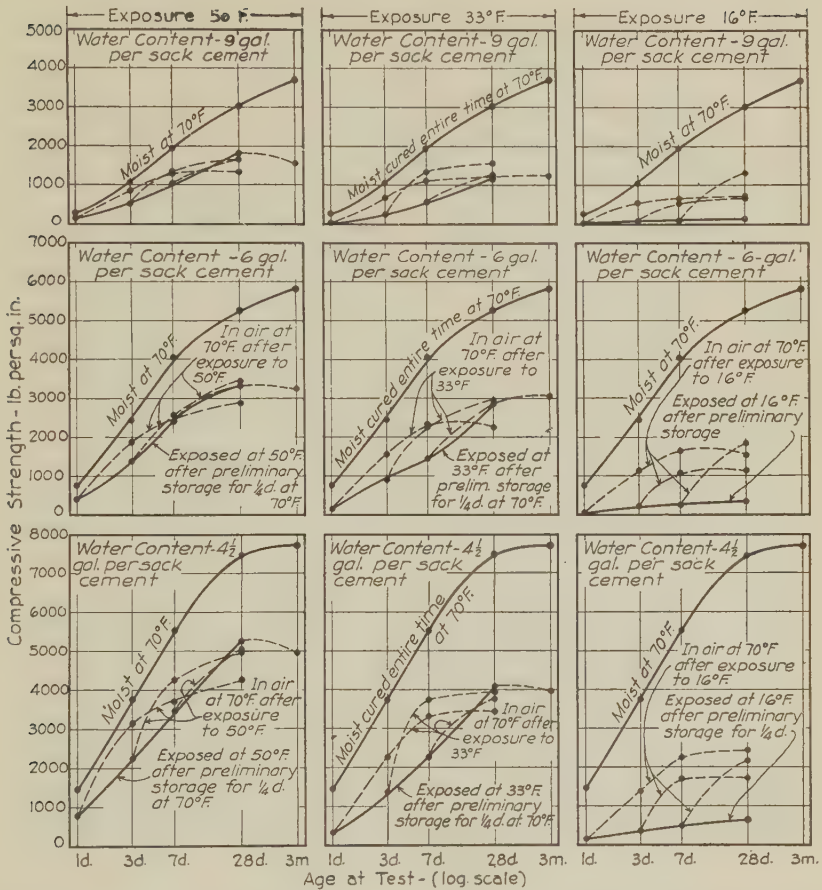 Exposure 50°F.
Exposure 33°F.
Exposure 16°F.
Compressive Strength - lb. per sq. in.
5000
4000
3000
2000
1000
0
Water Content-9 gal.
per sack cement
Moist at 70°F.
Water Content-9 gal.
per sack cement
Moist cured entire time at 70°F.
Water Content-9 gal.
per sack cement
Moist at 70°F.
7000
6000
5000
4000
3000
2000
1000
0
Water Content-6 gal.
per sack cement
Moist at 70°F.
In air at
70°F. after
exposure to
50°F.
Exposed at 50°F.
after preliminary
storage for ¼d. at
70°F.
Water Content-6 gal.
per sack cement
Moist cured entire time at 70°F.
In air at
70°F. after
exposure to
33°F.
Exposed at
33°F. after
prelim. storage
for ¼d. at 70°F.
Water Content-6-gal.
per sack cement
Moist at 70°F.
In air at
70°F. after
exposure
to 16°F.
Exposed at 16°F.
after preliminary
storage
8000
7000
6000
5000
4000
3000
2000
1000
0
Water Content-4½
gal. per sack
cement
Moist at 70°F.
In air
at 70°F. after
exposure
to 50°F.
Exposed at 50°F.
after preliminary
storage for ¼d.
at 70°F.
Water Content-4½
gal. per sack
cement
Moist cured entire time
at 70°F.
In air
at 70°F. after
exposure to
33°F.
Exposed at 33°F.
after preliminary
storage for ¼d. at 70°F.
Water Content-4½
gal. per sack
cement
Moist at 70°F.
In air at 70°F
after exposure
to 16°F.
Exposed at 16°F.
after preliminary
storage for ¼d.
1d. 3d. 7d. 28d. 3m.
1d. 3d. 7d. 28d. 3m.
1d. 3d. 7d. 28d. 3m.
Age at Test - (log. scale)